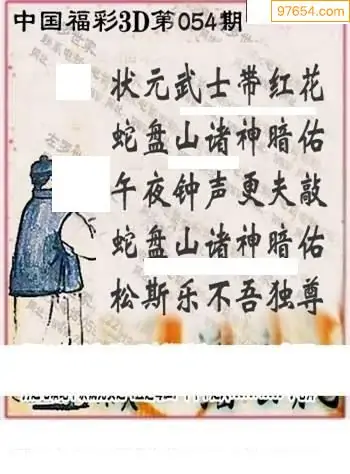 97654.com
中国福彩3D第054期
状元武士带红花
蛇盘山诸神暗佑
午夜钟声更夫敲
蛇盘山诸神暗佑
松斯乐不吾独尊